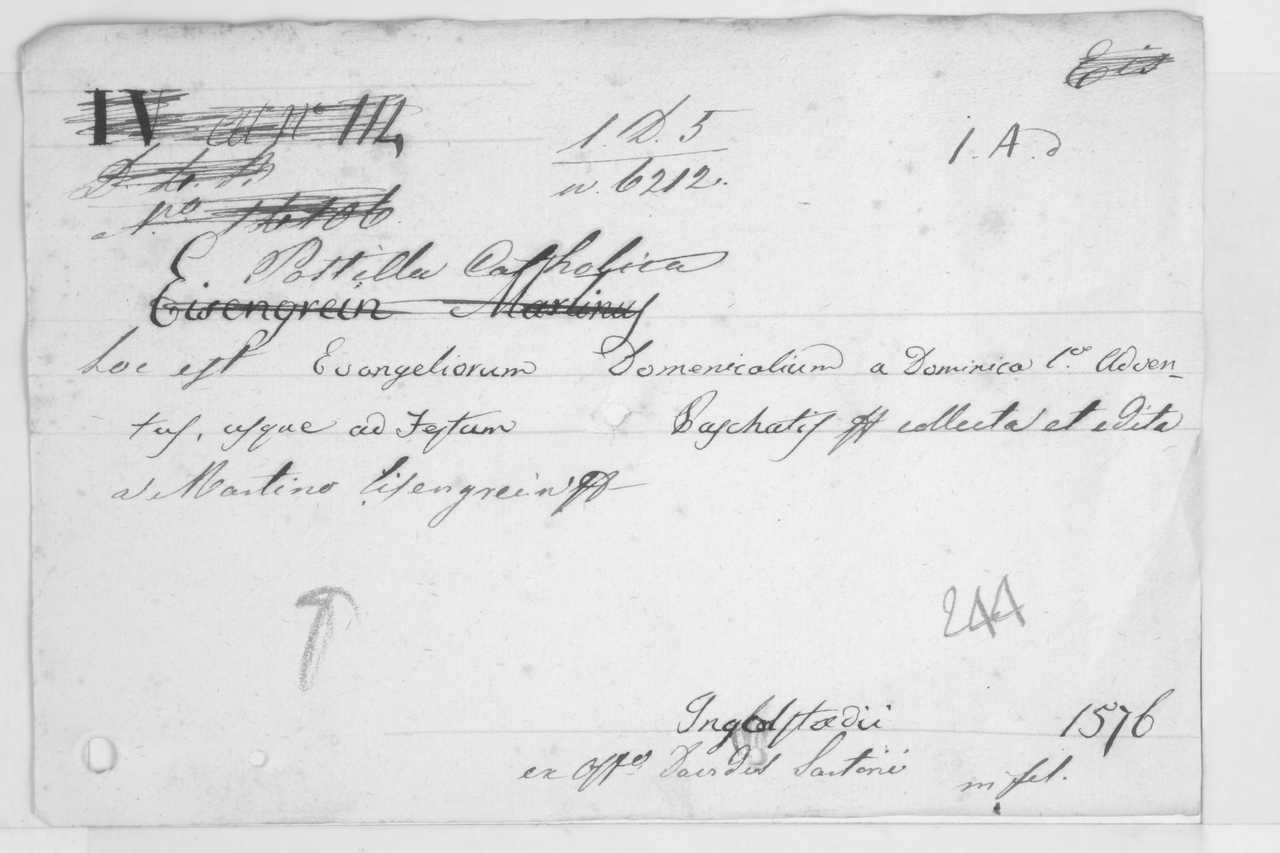 Eis
IV ad No III,
1. D. 5
1. A. d
n. 6212.
No 14106.
E. Postilla Catholica
Eisengrein Martinus
hoc est Evangeliorum Domenicalium a Dominica 1a Adven-
tus, usque ad Festum Paschatis collecta et edita
a Martino Eisengrein
T
244
Ingolstadii 1576
ex Offa Davidis Sartorii
in fol.